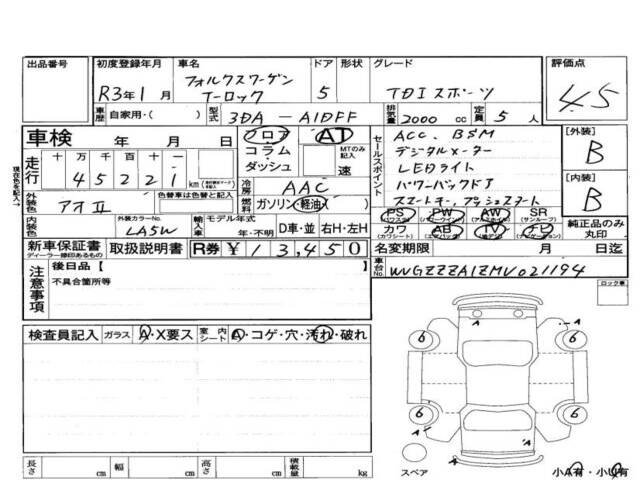 出品番号
初度登録年月 R3年1月
車名 フォルクスワーゲン
T-ロック
ドア 5
形状
グレード TDIスポーツ
評価点 4.5
車歴 自家用・( )
型式 3DA-A1DFF
排気量 2000 cc
定員 5人
車検 年 月 日
フロア コラム ダッシュ
AT
MTのみ記入 速
セールスポイント
ACC. BSM
デジタルメーター
LEDライト
パワーバックドア
スマートキー,プッシュスタート
[外装] B
[内装] B
現状色を記入→
走行 十 万 千 百 十 一
45221 km
冷房 AAC
外装色 アオII
色替車は色替と記入
燃料 ガソリン・軽油
内装色
外装カラーNo. LA5W
輸入車 モデル年式 年・不明
D車・並 右H・左H
PS (パワステ) PW (パワーウィンド) AW (アルミホイール) SR (サンルーフ)
カワ (カワシート) AB (エアバッグ) TV (テレビ) ナビ (ナビゲーション)
純正品のみ丸印
新車保証書
ディーラー捺印あるもの
取扱説明書
R券 ¥13,450
名変期限 月 日迄
車台No. WVGZZZA1ZMV021194
注意事項
後日品【
不具合箇所等
ロック車
検査員記入 ガラス A・X要ス
室内シート A・コゲ・穴・汚れ・破れ
A
A
6 6
6 6
A
A
スペア
小A有・小U有
長さ cm 幅 cm 高さ cm 積載量 kg